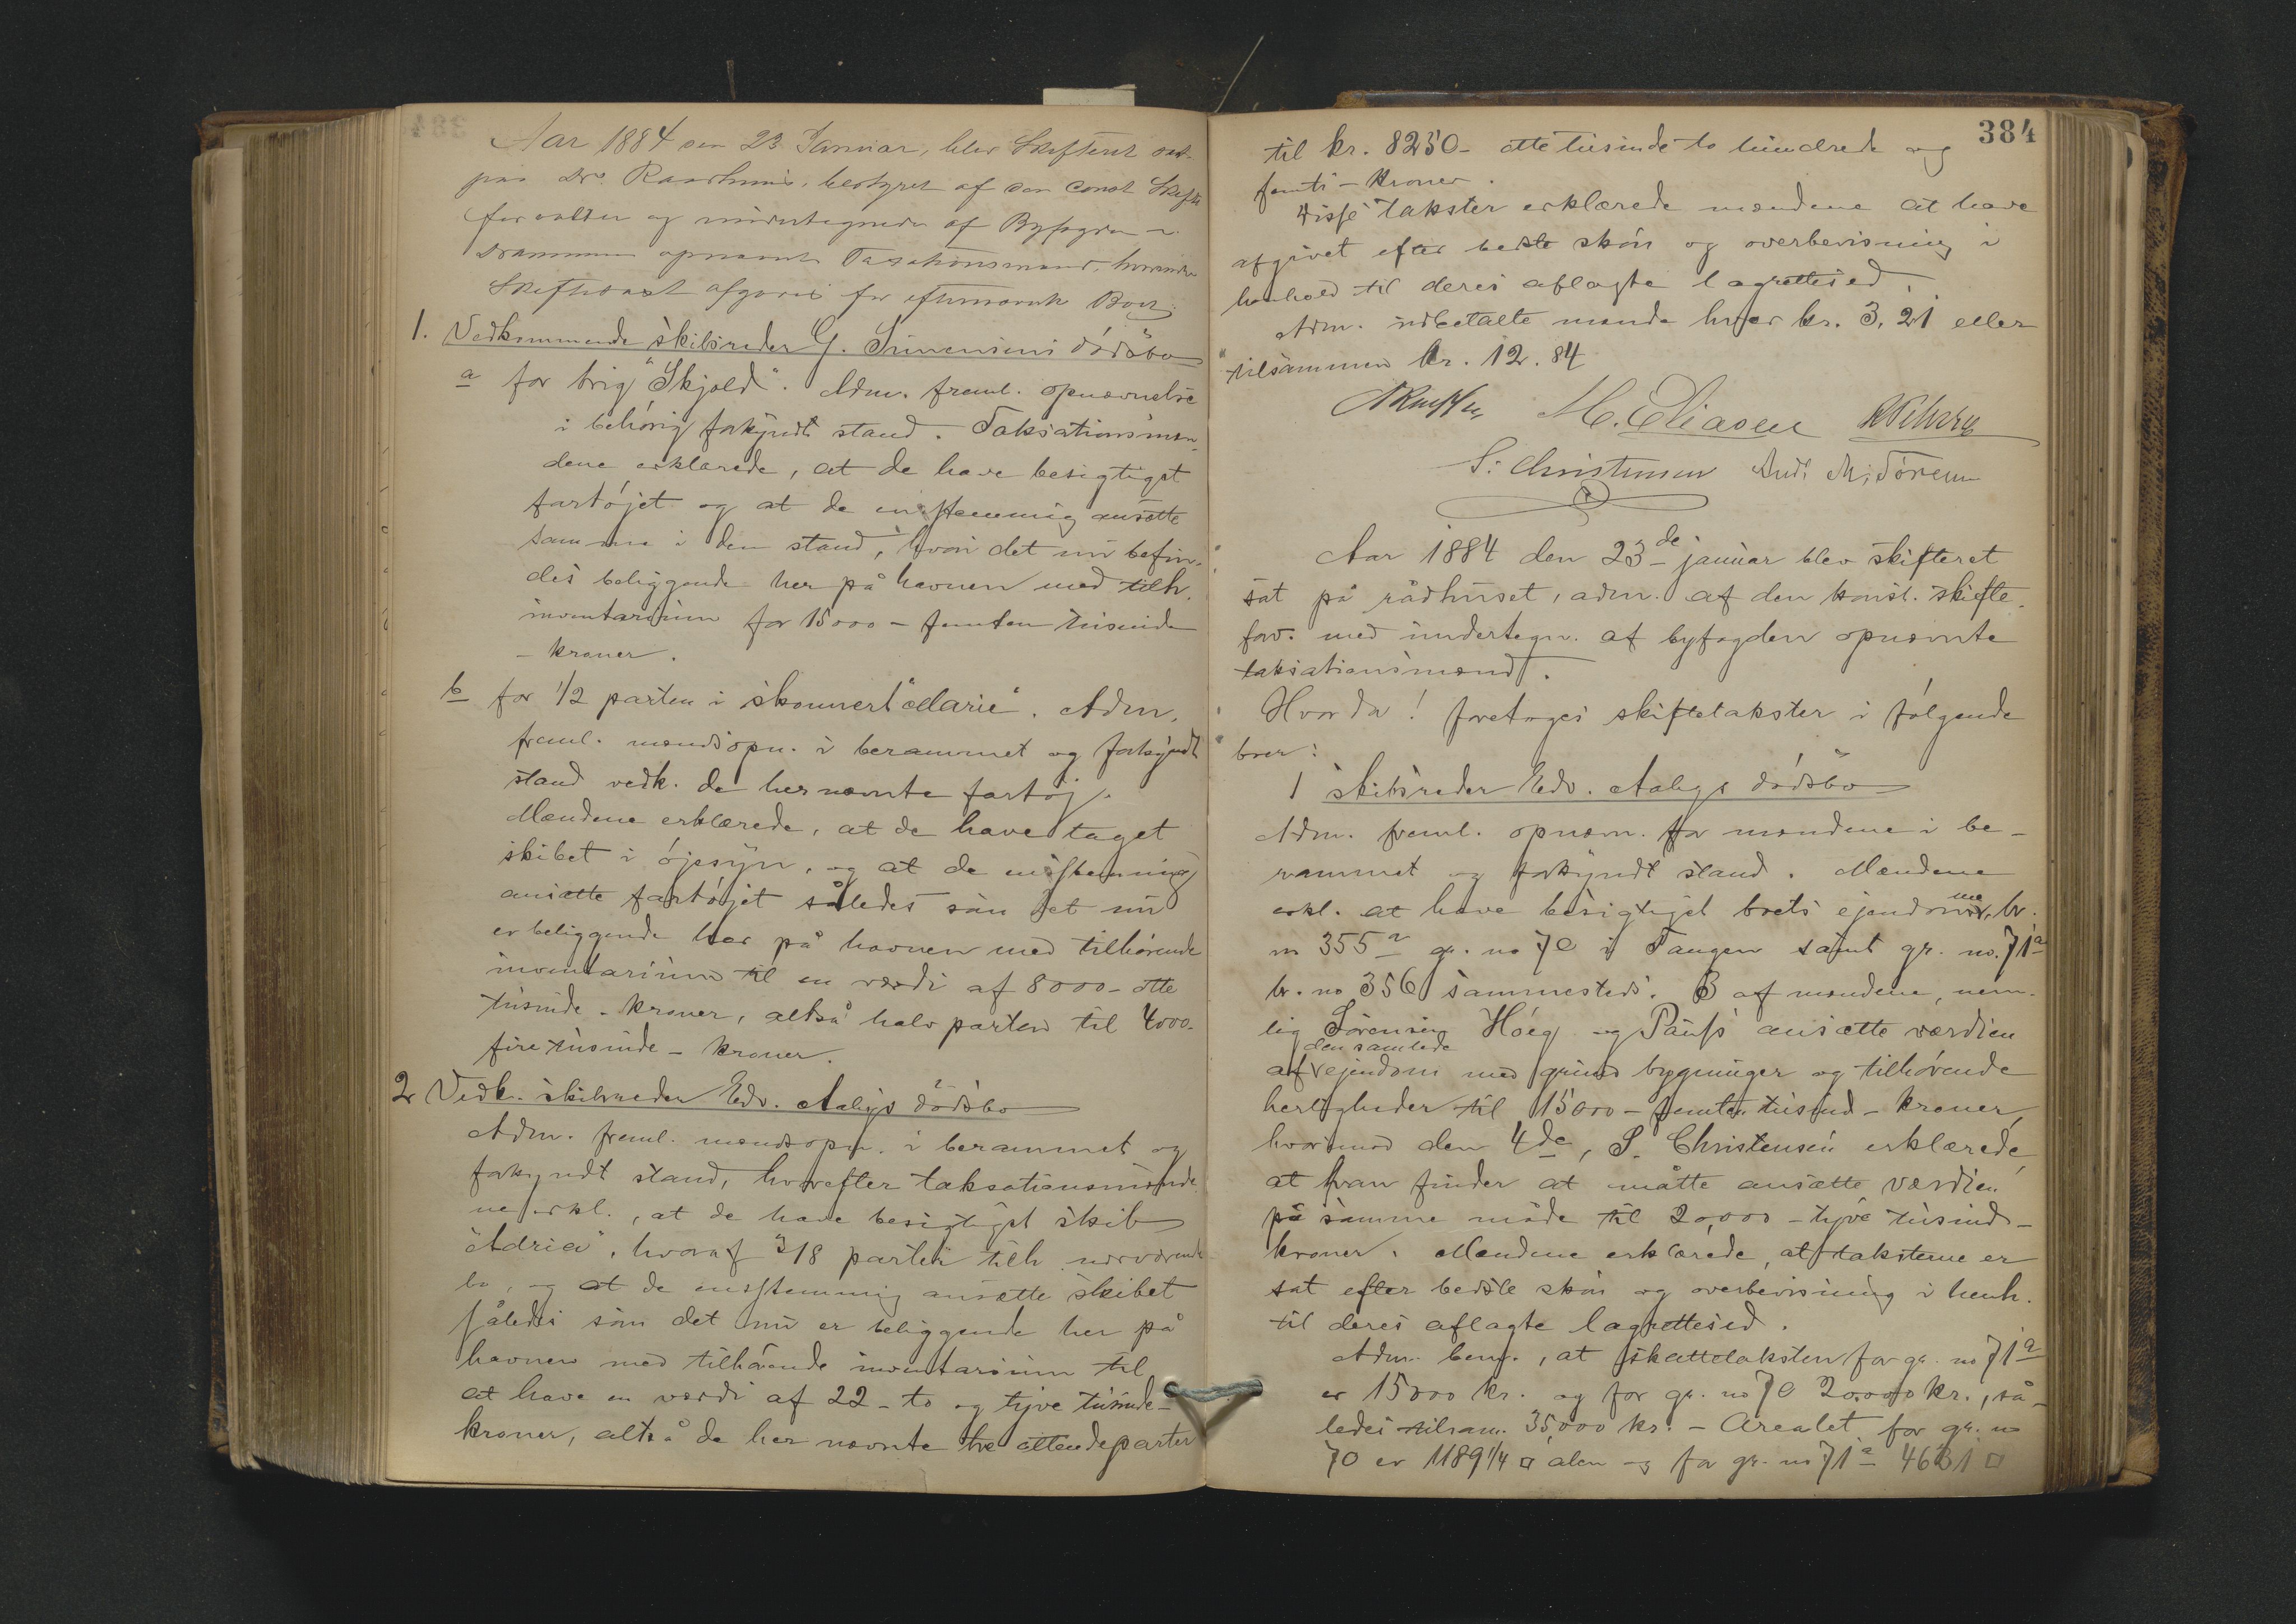 Aar 1884 den 23 Januar, blev Skifteret sat
paa Drs. Raadhuus, bestyret af den const Skifte
forvalter og undertegnede af Byfogden i
Drammen opnævnte Taxationsmænd, hvorunder
Skiftetaxt afgaves for efternævnte Boer:
1. Vedkommende skibsreder G. Simensens dödsbo
a for brig "Skjold". Adm. freml. opnævnelse
i behörig forkyndt stand. Taksationsmæn
dene erklærede, at de have besigtiget
fartöjet og at de enstemmig ansætte
samme i den stand, hvori det nu befin-
des beliggende her på havnen med tilh.
inventarium for 15000 - femten tusinde
- kroner.
b for 1/2 parten i skonnert "Marie". Adm.
freml. mændsopn. i berammet og forkyndt
stand vedk. de her nævnte fartöj.
Mændene erklærede, at de have taget
skibet i öjesyn, og at de enstemmig
ansætte fartöjet således som det nu
er beliggende her på havnen med tilhörende
inventarium til en værdi af 8000 - otte
tusinde - kroner, altså halvparten til 4000-
fire tusinde - kroner.
2 Vedk. skibsreder Edv. Aabys dödsbo
Adm. freml. mændsopn. i berammet og
forkyndt stand, hvorefter taksationsmænde
ne erkl., at de have besigtiget skib
"Adria", hvoraf 3/8 parter tilh. nærværende
bo, og at de enstemmig ansætte skibet
således som det nu er beliggende her på
havnen med tilhörende inventarium til
at have en værdi af 22 - to og tyve tusinde -
kroner, altså de her nævnte tre ottendeparter
384
til kr. 8250 - otte tusinde to hundrede og
femti - kroner.
Disse takster erklærede mændene at have
afgivet efter bedste skön og overbevisning i
henhold til deres aflagte lagrettesed.
Adm. udbetalte mænde hver kr. 3,21 eller
tilsammen kr. 12.84
M. Eliasen
S. Christensen And. M. Sörensen
Aar 1884 den 23de januar blev skifteret
sat på rådhuset, adm. af den konst. skifte-
forv. med undertegn. af byfogden opnævnte
taksationsmænd.
Hvorda! foretoges skiftetakster i fölgende
boer:
1 skibsreder Edv. Aabys dödsbo
Adm. freml. opnævn. for mændene i be-
rammet og forkyndt stand. Mændene
erkl. at have besigtiget boets ejendomme, br.
no 355a gr. no 70 i Tangen samt gr. no. 71a
br. no 356 sammesteds. 3 af mændene, nem-
lig Sörensen, Höeg og Pauss ansætte værdien
af den samlede ejendom med grund bygninger og tilhörende
herligheder til 15000 - femten tusind - kroner,
hvorimod den 4de, S. Christensen erklærede,
at han finder at måtte ansætte værdien
på samme måde til 20,000 - tyve tusind -
kroner. Mændene erklærede, at taksterne er
sat efter bedste skön og overbevisning i henh.
til deres aflagte lagrettesed.
Adm. bem., at skattetaksten for gr. no 71a
er 15000 kr. og for gr. no 70 20.000 kr., så-
ledes tilsam. 35,000 kr. - Arealet for gr. no
70 er 1189 1/4 □ alen og for gr. no 71a 4631 □